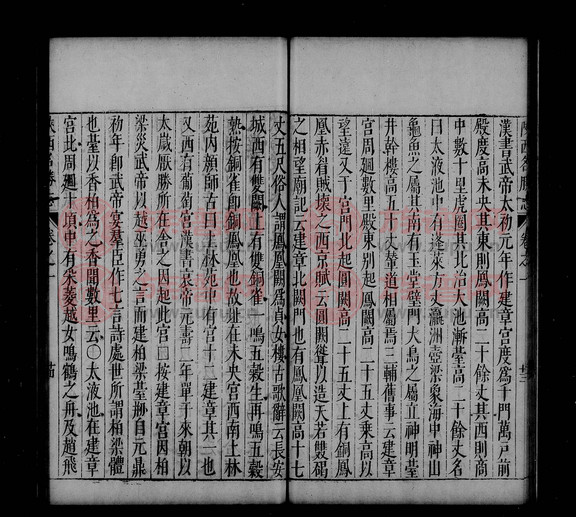 漢書武帝太初元年作建章宮度爲千門萬戶前
殿度高未央其東則鳳闕高二十餘丈其西則商
中數十里虎圈其北治大池漸臺高二十餘丈名
曰太液池中有蓬萊方丈瀛洲壺梁象海中神山
龜魚之屬其南有玉堂壁門大鳥之屬立神明堂
井幹樓高五十丈輦道相屬焉三輔舊事云建章
宮周廻數里殿東别起鳳闕高二十五丈乘高以
望遠又于宮門北起圓闕高二十五丈上有銅鳳
凰赤眉賊壞之西京賦云圓闕聳以造天若雙碣
之相望廟記云建章北闕門也有鳳凰闕高十七
丈五尺俗人謂鳳凰闕爲貞女樓古歌辭云長安
城西有雙闕上有雙銅雀一鳴五穀生再鳴五穀
熟按銅雀即銅鳳凰也故趾在未央宮西南上林
苑内顔師古曰上林苑有宮十二建章其一也
又西有葡萄宮漢書哀帝元壽二年單于來朝以
太歲厭勝所在舍之因起此宮□按建章宮因柏
梁災武帝以越巫勇之言而建柏梁臺刱自元鼎
初年即武帝宴羣臣作七言詩處世所謂柏梁體
也臺以香柏爲之香聞數里云〇太液池在建章
宮北周廻十頃中有采菱越女鳴鶴之舟及趙飛
陝西名勝志
卷之一